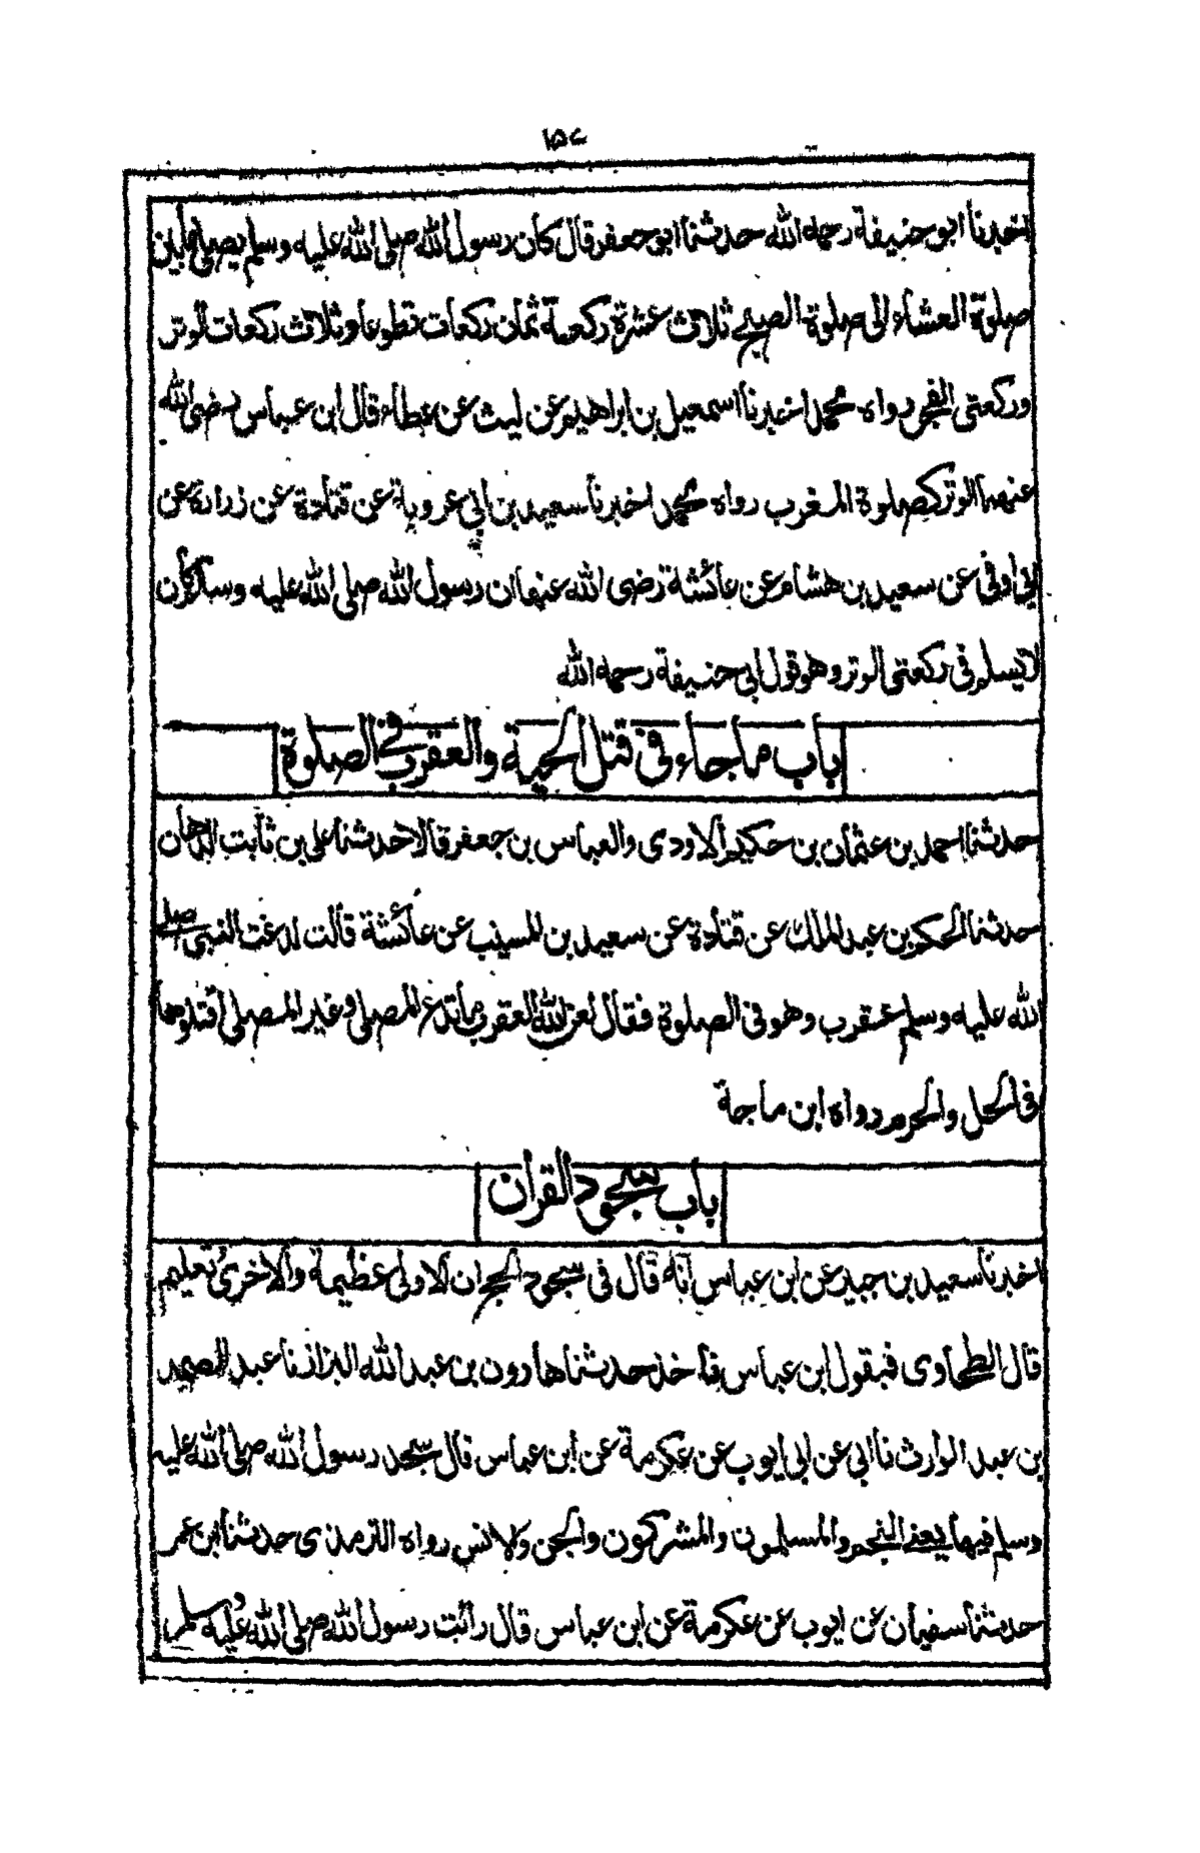 ١٥٧
اخبرنا ابو حنيفة رحمه الله حدثنا ابو جعفر قال كان رسول الله صلى الله عليه وسلم يصلى ما بين
صلوة العشاء الى صلوة الصبح ثلاث عشرة ركعة ثمان ركعات تطوعا وثلاث ركعات الوتر
وركعتى الفجر رواه محمد اخبرنا اسمعيل بن ابراهيم عن ليث عن عطاء قال ابن عباس رضى الله
عنهما الوتر كصلوة المغرب رواه محمد اخبرنا سعيد بن ابي عروبة عن قتادة عن زرارة عن
ابي اوفى عن سعيد بن هشام عن عائشة رضى الله عنها ان رسول الله صلى الله عليه وسلم كان
لا يسلم فى ركعتى الوتر وهو قول ابي حنيفة رحمه الله
باب ما جاء فى قتل الحية والعقرب فى الصلوة
حدثنا احمد بن عثمان بن حكيم الاودى والعباس بن جعفر قالا حدثنا على بن ثابت الدهان
حدثنا الحكم بن عبد الملك عن قتادة عن سعيد بن المسيب عن عائشة قالت لدغت النبى صلى
الله عليه وسلم عقرب وهو فى الصلوة فقال لعن الله العقرب ما تدع المصلى وغير المصلى اقتلوها
فى الحل والحرم رواه ابن ماجة
باب سجود القرأن
اخبرنا سعيد بن جبير عن ابن عباس انه قال فى سجود الحج ان الاولى عظيمة والاخرى تعليم
قال الطحاوى فبقول ابن عباس نأخذ حدثنا هارون بن عبد الله البزاز نا عبد الصمد
بن عبد الوارث نا ابي عن ابي ايوب عن عكرمة عن ابن عباس قال سجد رسول الله صلى الله عليه
وسلم فيها يعنے النجم والمسلمون والمشركون والجن والانس رواه الترمذى حدثنا ابن عمر
حدثنا سفيان عن ايوب عن عكرمة عن ابن عباس قال رائت رسول الله صلى الله عليه وسلم